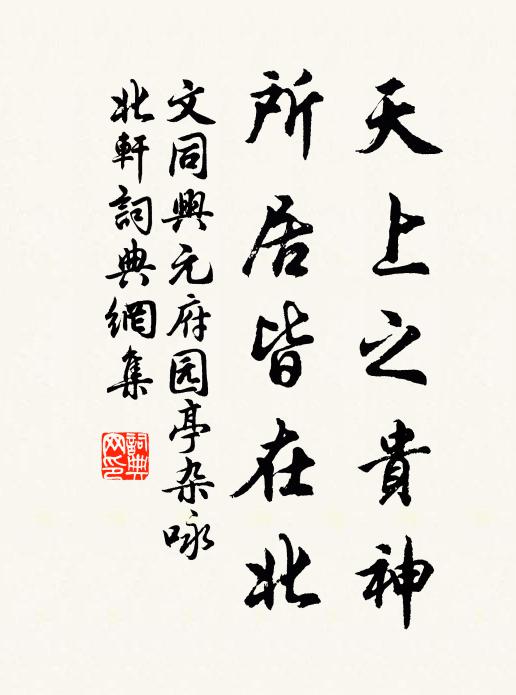 天上之貴神
所居皆在北
文同興元府园亭杂咏
北軒詞典網集
詞典
网印